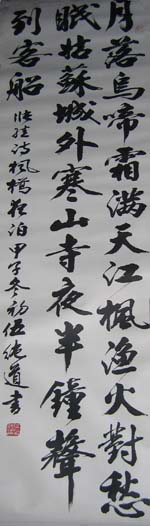 月落烏啼霜滿天江楓漁火對愁
眠姑蘇城外寒山寺夜半鐘聲
到客船
張继诗楓橋夜泊甲子冬初伍純道书